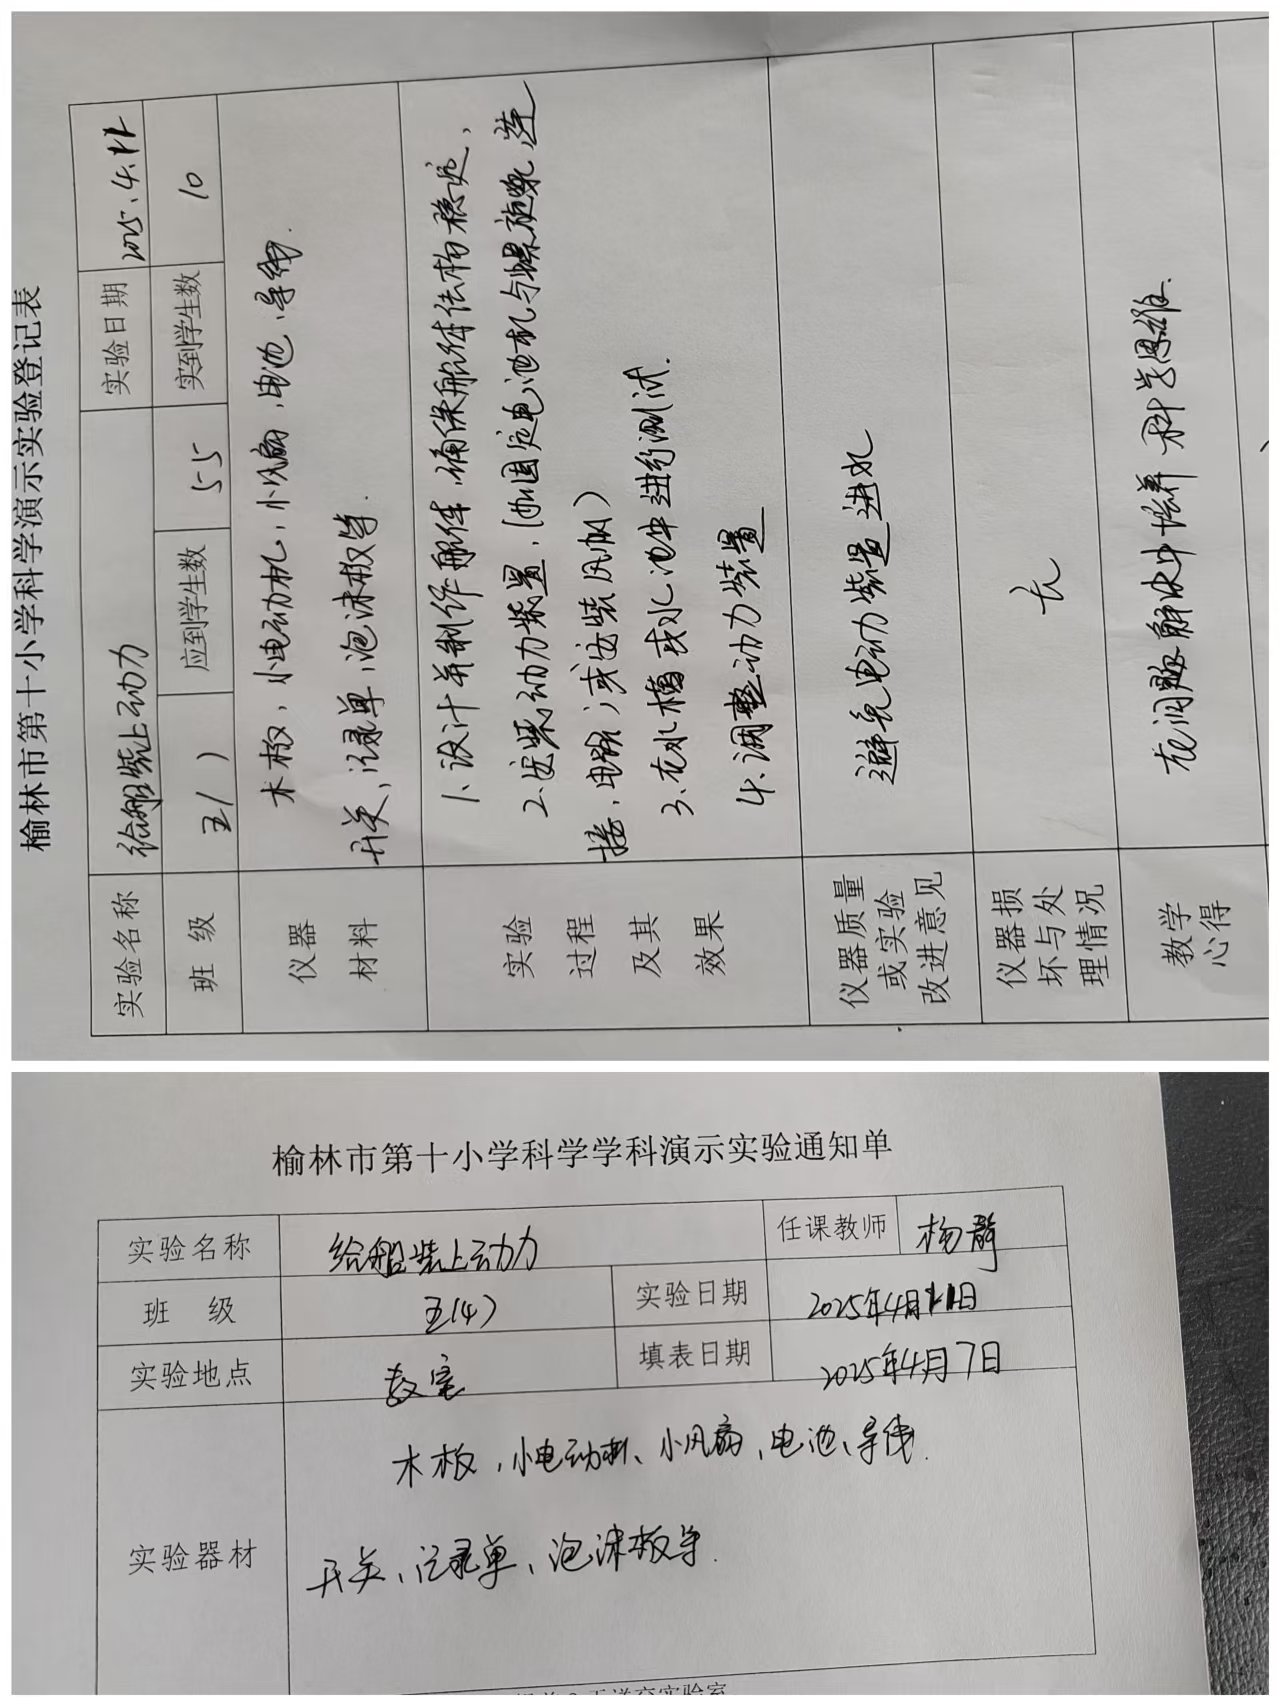 榆林市第十小学科学演示实验登记表
实验名称 给船装上动力 实验日期 2025.4.11
班 级 五( ) 应到学生数 55 实到学生数 10
仪器材料 木板，小电动机，小风扇，电池，导线.
开关，记录单，泡沫板等.
实验过程及其效果 1、设计并制作船体，确保船体结构稳定，
2、安装动力装置，(如固定电池机与螺旋桨，连
接，电路；或安装风帆）
3、在水槽或水池中进行测试.
4、调整动力装置
仪器质量或实验改进意见 避免电动装置进水
仪器损坏与处理情况 无
教学心得 在问题解决中培养科学思维.
榆林市第十小学科学学科演示实验通知单
实验名称 给船装上动力 任课教师 杨静
班 级 五(4) 实验日期 2025年4月11日
实验地点 教室 填表日期 2025年4月7日
实验器材 木板，小电动机、小风扇，电池、导线.
开关、记录单、泡沫板等.